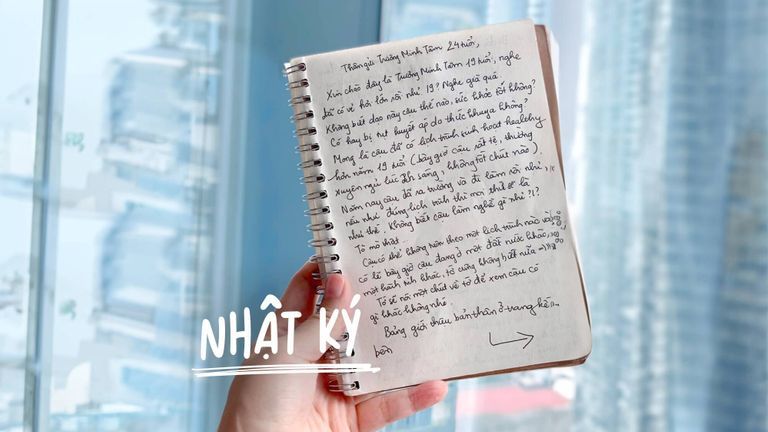 Thân gửi Trương Minh Tâm 24 tuổi,
Xin chào đây là Trương Minh Tâm 19 tuổi, nghe
có vẻ hơi lớn rồi nhỉ 19? Nghe già quá
Không biết dạo này cậu thế nào, sức khỏe tốt không?
Có hay bị tụt huyết áp do thức khuya không?
Mong là cậu đã có lịch trình sinh hoạt healthy
hơn năm 19 tuổi (bây giờ cậu rất tệ, thường
xuyên ngủ lúc sáng, không tốt chút nào).
Năm nay cậu đã ra trường và đi làm rồi nhỉ,
nếu như đúng lịch trình thì mọi thứ sẽ là
như thế. Không biết cậu làm nghề gì nhỉ?!?
Tò mò thật.
Cậu có thể không nằm theo một lịch trình nào và
có lẽ bây giờ cậu đang ở một đất nước khác,
một hành tinh khác, tớ cũng không biết nữa
Tớ sẽ nói một chút về tớ để xem cậu có
gì khác không nhé.
Bảng giới thiệu bản thân ở trang kế
bên
NHẬT KÝ